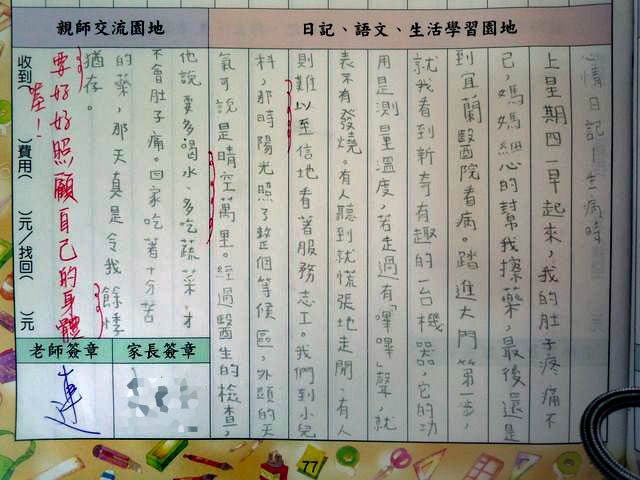 日記、語文、生活學習園地
心情日記 生病時
上星期四一早起來,我的肚子疼痛不
已,媽媽細心的幫我擦藥,最後還是
到宜蘭醫院看病。踏進大門第一步,
就我看到新奇有趣的一台機器,它的功
用是測量溫度,若走過有「嗶嗶」聲,就
表示有發燒。有人聽到就慌張地走開,有人
則難以至信地看著服務志工。我們到小兒
科,那時陽光照了整個等候區,外頭的天
氣可說是晴空萬里。經過醫生的檢查,
他說要多喝水、多吃蔬菜,才
不會肚子痛。回家吃著十分苦
的藥,那天真是令我餘悸
猶存。
親師交流園地
要好好照顧自己的身體
喔!
收到( )費用( )元/找回( )元
家長簽章
老師簽章
連
77